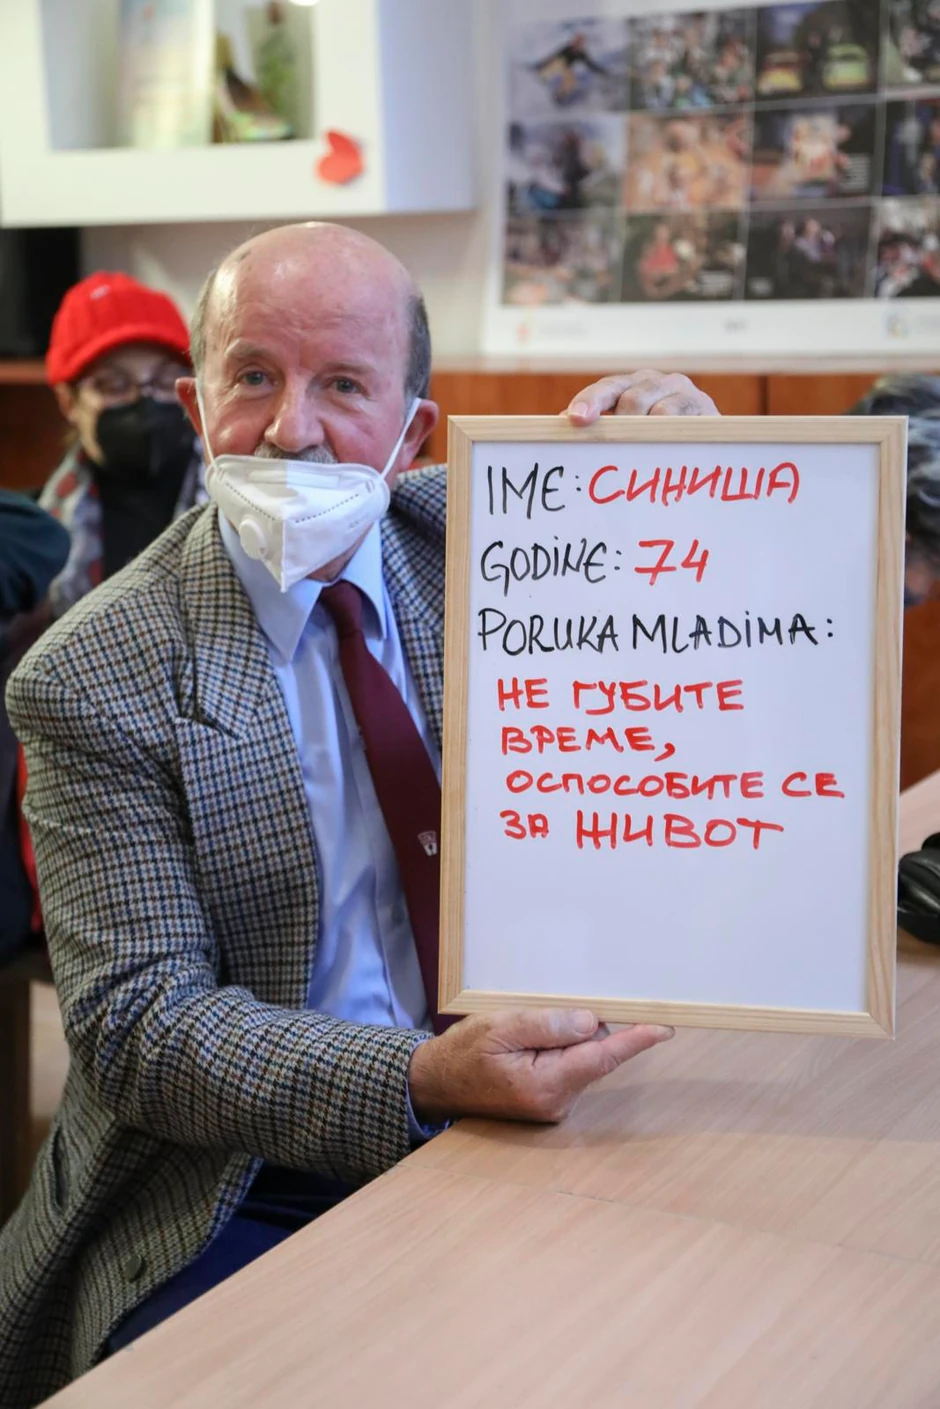 IME: СИНИША
GODINE: 74
PORUKA MLADIMA:
НЕ ГУБИТЕ
ВРЕМЕ,
ОСПОСОБИТЕ СЕ
ЗА ЖИВОТ